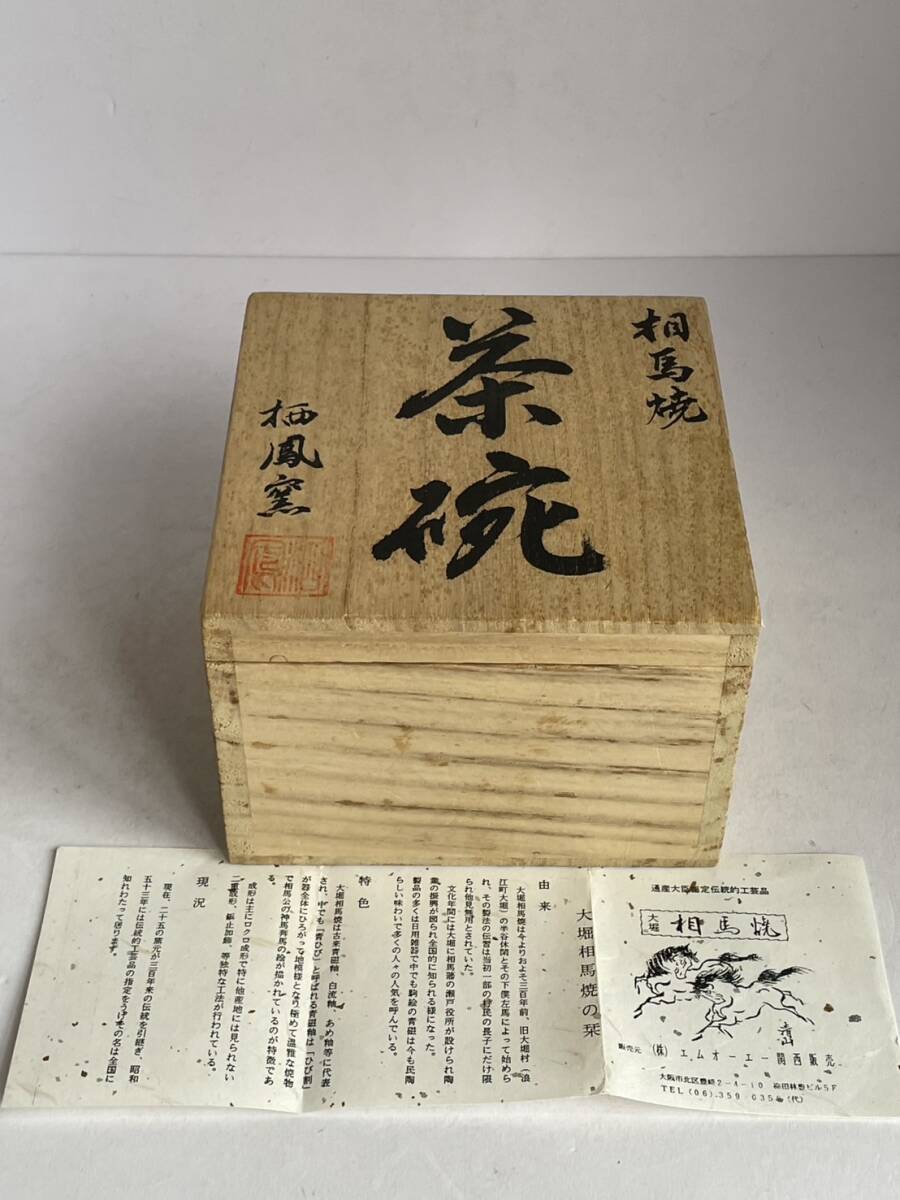 相馬焼
茶碗
栖鳳窯
通産大臣指定伝統的工芸品
大堀
相馬焼
販売元 (株) エムオーエー関西販売
大阪市北区豊崎2-4-10
TEL(06)359
大堀相馬焼の栞
由来
大堀相馬焼は今よりおよそ三百年前、旧大堀村(浪
江町大堀)の半谷休閑とその下僕左馬によって始めら
れ、その製法の伝習は当初一部の村民の長子にだけ限
られ他見無用とされていた。
文化年間には大堀に相馬藩の瀬戸役所が設けられ陶
業の振興が図られ全国的に知られる様になった。
製品の多くは日用雑器で中でも駒絵の青磁は今も民陶
らしい味わいで多くの人々の人気を呼んでいる。
特色
大堀相馬焼は古来青磁釉、白流釉、あめ釉等に代表
され、中でも「青ひび」と呼ばれる青磁釉は「ひび割」
が器全体にひろがって地模様となり極めて温雅な焼物
で相馬公の神馬奔馬の絵が描かれているのが特徴であ
る。
成形は主にロクロ成形で特に他産地には見られない
二重成形、鋲止加飾、等独特な工法が行われている。
現況
現在、二十五の窯元が三百年来の伝統を引継ぎ、昭和
五十三年には伝統的工芸品の指定をうけその名は全国に
知れわたって居ります。